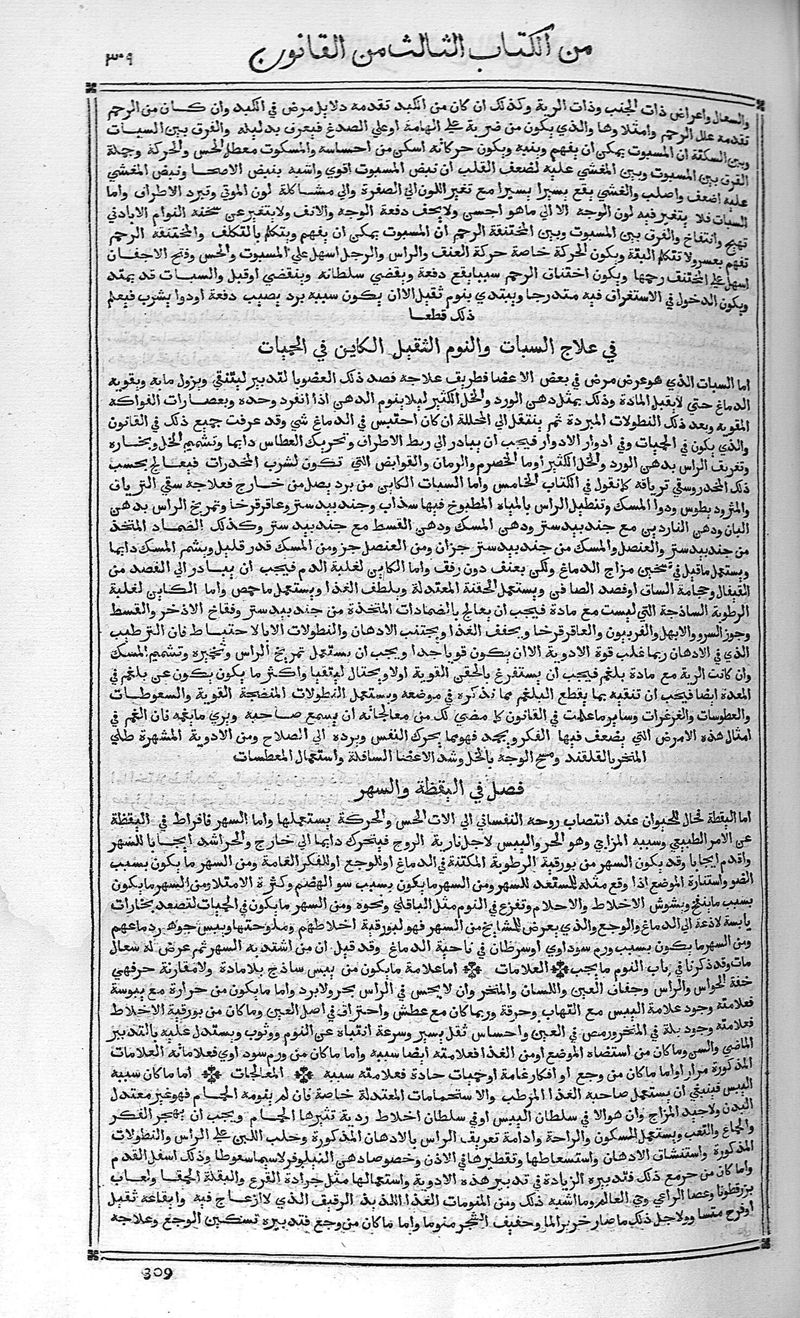 من الكتاب الثالث من القانون
٣٠٩
والسعال واعراض ذات الجنب وذات الرية وكذلك ان كان من الكبد تقدمه دلايل مرض في الكبد وان كان من الرحم
تقدمه علل الرحم وامتلاوها والذي يكون من ضربة على الهامة او على الصدغ فيعرف بدليله والفرق بين السبات
وبين السكتة ان المسبوت يمكن ان يفهم وينبه ويكون حركاته اسكن من احساسه والمسكوت معطل الحس والحركة وجملة
الفرق بين المسبوت وبين المغشي عليه لضعف القلب ان نبض المسبوت اقوي واشبه بنبض الاصحا ونبض المغشي
عليه اضعف واصلب والغشي يقع يسيرا يسيرا مع تغير اللون الي الصفرة والي مشاكلة لون الموتي وتبرد الاطراف واما
السبات فلا يتغير فيه لون الوجه الا الي ما هو احسن ولا ينحف دفعة الوجه والانف ولا يتغير عن سحنه النوام الا بادني
تهيج وانتفاخ والفرق بين المسبوت وبين المختنقة الرحم ان المسبوت يمكن ان يفهم ويتكلم بالتكلف والمختنقة الرحم
تفهم بعسر ولا تتكلم البتة ويكون الحركة خاصة حركة العنف والراس والرجل اسهل على المسبوت والحس وفتح الاجفان
اسهل على المختنف رحمها ويكون اختناق الرحم سببا يقع دفعة ويقضي سلطانه وينقضي او قبل والسبات قد يمتد
ويكون الدخول في الاستغراق فيه متدرجا ويبتدي بنوم ثقيل الا ان يكون سببه برد يصيب دفعة او دوا يشرب فيعلم
ذلك قطعا
في علاج السبات والنوم الثقيل الكاين في الحميات
اما السبات الذي هو عرض مرض في بعض الاعضا فطريف علاجه فصد ذلك العضو بالتدبير لينتفي ويزول ما به وبقويه
الدماغ حتي لا يقبل المادة وذلك بمثل دهن الورد والخل الكثير ليلا ينوم الدهن اذا انفرد وحده وبعصارات الفواكه
المقويه وبعد ذلك النطولات المبردة ثم ينتقل الي المحللة ان كان احتبس في الدماغ شي وقد عرفت جميع ذلك في القانون
والذي يكون في الحميات وفي ادوار الادوار فيجب ان يبادر الي ربط الاطراف وتحريك العطاس دايما وتشميم الخل وبخاره
وتعريف الراس بدهن الورد والخل الكثير او ما الحصرم والرمان والقوابض التي تكون لشرب المخدرات فيعالج بحسب
ذلك المخدر وسقي ترياقه كما نقول في الكتاب الخامس واما السبات الكاين من برد يصل من خارج فعلاجه سقي الترياق
والمثروديطوس ودوا المسك وتنطيل الراس بالمياه المطبوخ فيها سذاب وجندبيدستر وعاقرقرحا وتمريخ الراس بدهن
البان ودهن الناردين مع جندبيدستر ودهن المسك ودهن القسط مع جندبيدستر وكذلك الضماد المتخذ
من جندبيدستر والعنصل والمسك من جندبيدستر جزان ومن العنصل جز ومن المسك قدر قليل ويشم المسك دايما
ويستعمل ما قيل في تسخين مزاج الدماغ ولكن بعنف دون رفف واما الكاين لغلبة الدم فيجب ان يبادر الي الفصد من
القيفال وحجامة الساق او فصد الصافن ويستعمل الحقنة المعتدلة ويلطف الغذا ويستعمل ما حمص واما الكاين لغلبة
الرطوبة الساذجة التي ليست مع مادة فيجب ان يعالج بالضمادات المتخذة من جندبيدستر وفقاح الاذخر والقسط
وجوز السرو والابهل والفربيون والعاقرقرحا ويخفف الغذا ويجتنب الادهان والنطولات الا بالاحتياط فان الترطيب
الذي في الادهان ربما غلب قوة الادوية الا ان يكون قويا جدا ويجب ان يستعمل تمريخ الراس وتخميره وتشميم المسك
وان كانت الرية مع مادة بلغم فيجب ان يستفرغ بالحقن القوية اولا ويحتال ليتقيا واكثر ما يكون يكون عن بلغم في
المعدة ايضا فيجب ان تنقيه بما يقطع البلغم مما نذكره في موضعه ويستعمل النطولات المنضجة القوية والسعوطات
والعطوسات والغرغرات وساير ما علمت في القانون كما مضي لك من معالجاته ان يسمع صاحبه ويري ما يغمه فان الغم في
امثال هذه الامراض التي يضعف فيها الفكر ويجمد فهو مما يحرك النفس ويرده الي الصلاح ومن الادوية المشهرة طلي
المنخر بالقلقند ومسح الوجه بالخل وشد الاعضا السافلة واستعمال المعطسات
فصل في اليقظة والسهر
اما اليقظة فحال للحيوان عند انتصاب روحه النفساني الي الات الحس والحركة يستعملها واما السهر فافراط في اليقظة
عن الامر الطبيعي وسببه المزاجي وهو الحر واليبس لاجل نارية الروح فيتحرك دايما الي خارج والحر اشد ايجابا للسهر
واقدم ايجابا وقد يكون السهر من بورقية الرطوبة المكتنة في الدماغ او للوجع او للفكر الغامة ومن السهر ما يكون بسبب
الضو واستنارة الموضع اذا وقع مثله للمستعد للسهر ومن السهر ما يكون بسبب سو الهضم وكثرة الامتلا ومن السهر ما يكون
بسبب ما ينفخ ويشوش الاخلاط والاحلام وتفزع في النوم مثل الباقلي ونحوه ومن السهر ما يكون في الحميات لتصعد بخارات
يابسة لاذعة الي الدماغ والوجع والذي يعرض للمشايخ من السهر فهو لبورقية اخلاطهم وملوحتها ويبس جوهر دماغهم
ومن السهر ما يكون بسبب ورم سوداوي او سرطان في ناحية الدماغ وقد قيل ان من اشتد به السهر ثم عرض له سعال
مات وقد ذكرنا في باب النوم ما يجب العلامات اما علامة ما يكون من يبس ساذج بلا مادة ولا مقارنة حر فهي
خفة الحواس والراس وجفاف العين واللسان والمنخر وان لا يحس في الراس بحر ولا برد واما ما يكون من حرارة مع يبوسة
فعلامته وجود علامة اليبس مع التهاب وحرقة وربما كان مع عطش واحتراق في اصل العين وما كان من بورقية الاخلاط
فعلامته وجود بلة في المنخر ورمص في العين واحساس ثقل يسير وسرعة انتباه عن النوم ووثوب ويستدل عليه بالتدبير
الماضي والسن وما كان من استضاه الموضع او من الغذا فعلامته ايضا سببه واما ما كان من ورم سوداوي فعلاماته العلامات
المذكورة مرارا واما ما كان من وجع او افكار غامة او حميات حادة فعلامته سببه المعالجات اما ما كان سببه
اليبس فينبغي ان يستعمل صاحبه الغذا المرطب والاستحمامات المعتدلة خاصة فان لم ينومه الحمام فهو غير معتدل
البدن ولا جيد المزاج وان هو الا في سلطان اليبس او في سلطان اخلاط ردية تثيرها الحمام ويجب ان يهجر الفكر
والجماع والتعب ويستعمل السكون والراحة وادامة تعريف الراس بالادهان المذكورة وحلب اللبن على الراس والنطولات
المذكورة واستنشاق الادهان واستسعاطها وتقطيرها في الاذن وخصوصا دهن النيلوفر لا سيما سعوطا وذلك اسفل القدم
واما كان من حر مع ذلك فتدبيره الزيادة في تدبير هذه الادوية واستعمالها مثل جرادة القرع والبقلة الحمقا ولعاب
بزرقطونا وعصا الراعي وحي العالم وما اشبه ذلك ومن المنومات الغذا اللذيذ الرقيف الذي لا ازعاج فيه وايقاعه ثقيل
او هزج متسا وولاجل ذلك ما صار خرير الما وحفيف الشجر منوما واما ما كان من وجع فتدبيره تسكين الوجع وعلاجه
309